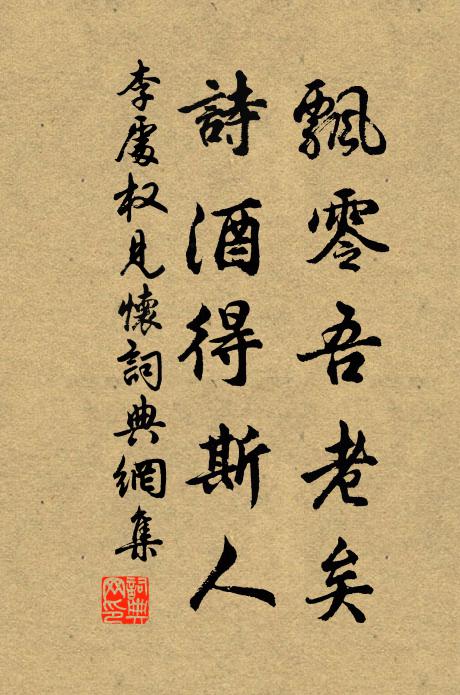 飄零吾老矣
詩酒得斯人
李處权見懷詞典網集
詞典
网印